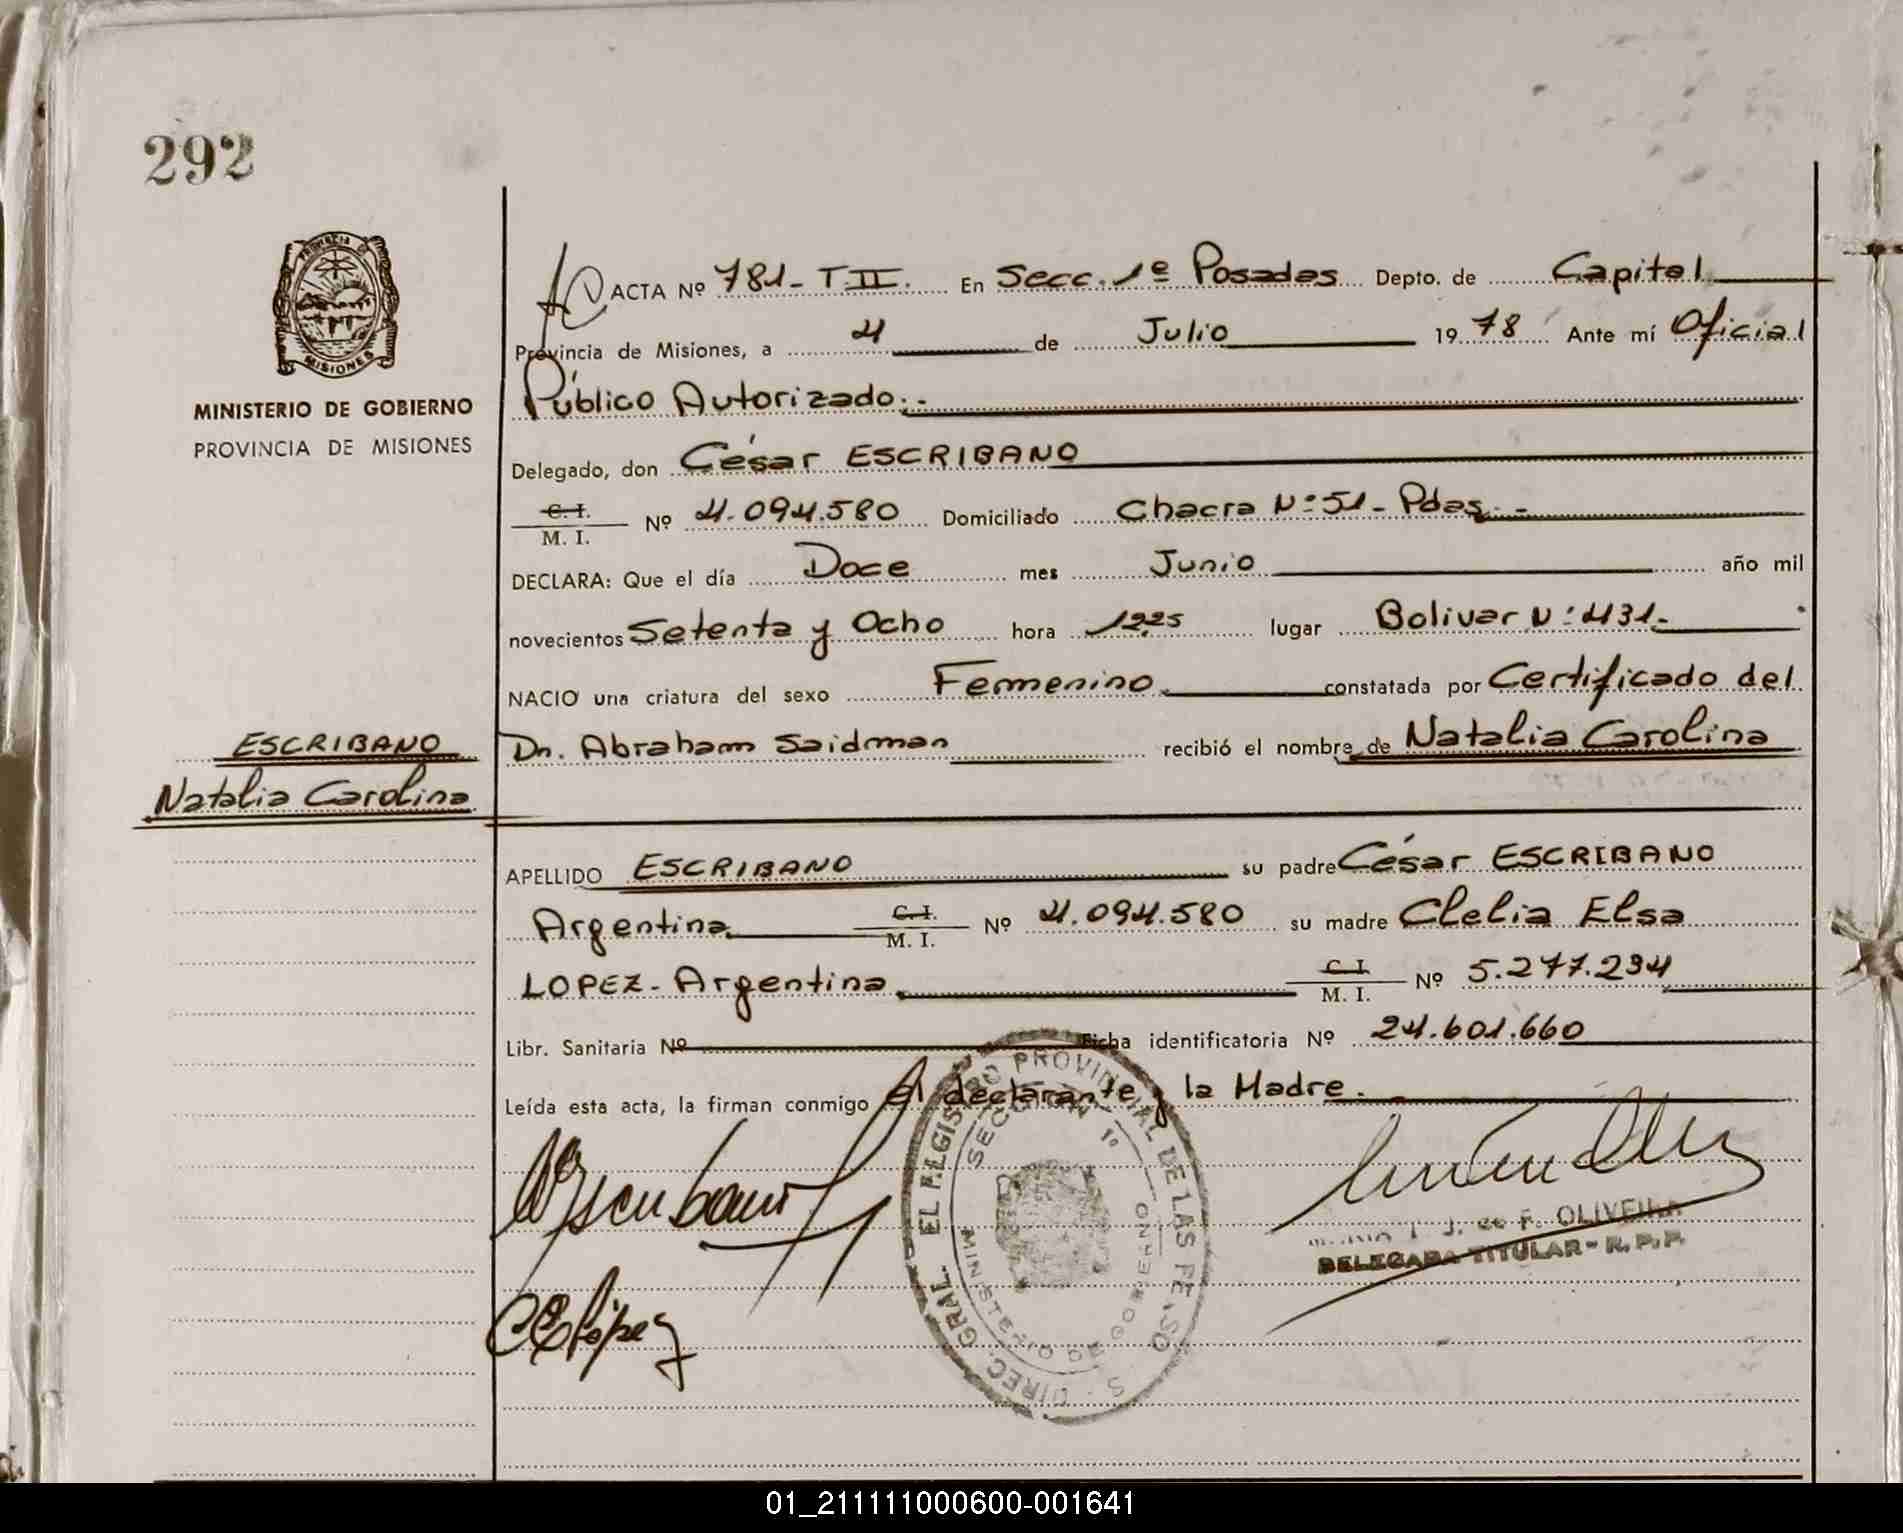 292
PROVINCIA DE
MISIONES
MINISTERIO DE GOBIERNO
PROVINCIA DE MISIONES
ACTA Nº 781- T II. En Secc. 1º Posadas Depto. de Capital
Provincia de Misiones, a 4 de Julio 1978 Ante mí Oficial
Público Autorizado.-
Delegado, don César ESCRIBANO
C.I.
M. I. Nº 4.094.580 Domiciliado Chacra Nº 51- Pdas.-
DECLARA: Que el día Doce mes Junio año mil
novecientos Setenta y Ocho hora 12,25 lugar Bolivar Nº 431-
NACIO una criatura del sexo Femenino constatada por Certificado del
ESCRIBANO
Dn. Abraham Saidman recibió el nombre de Natalia Carolina
Natalia Carolina
APELLIDO ESCRIBANO su padre César ESCRIBANO
Argentina C.I. M. I. Nº 4.094.580 su madre Clelia Elsa
LOPEZ- Argentina C.I. M. I. Nº 5.277.234
Libr. Sanitaria Nº Ficha identificatoria Nº 24.601.660
Leída esta acta, la firman conmigo el declarante y la Madre.
DIREC. GRAL. EL REGISTRO PROVINCIAL DE LAS PERSO S
SECCION 1º
MINISTERIO DE GOBIERNO
J. de F. OLIVEIRA
DELEGADA TITULAR - R. P. P.
CELópez
01_211111000600-001641